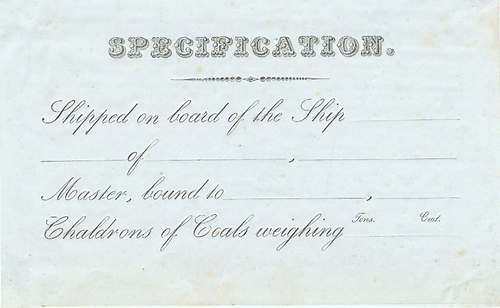 SPECIFICATION.
Shipped on board of the Ship
of ,
Master, bound to ,
Chaldrons of Coals weighing Tons. Cwt.